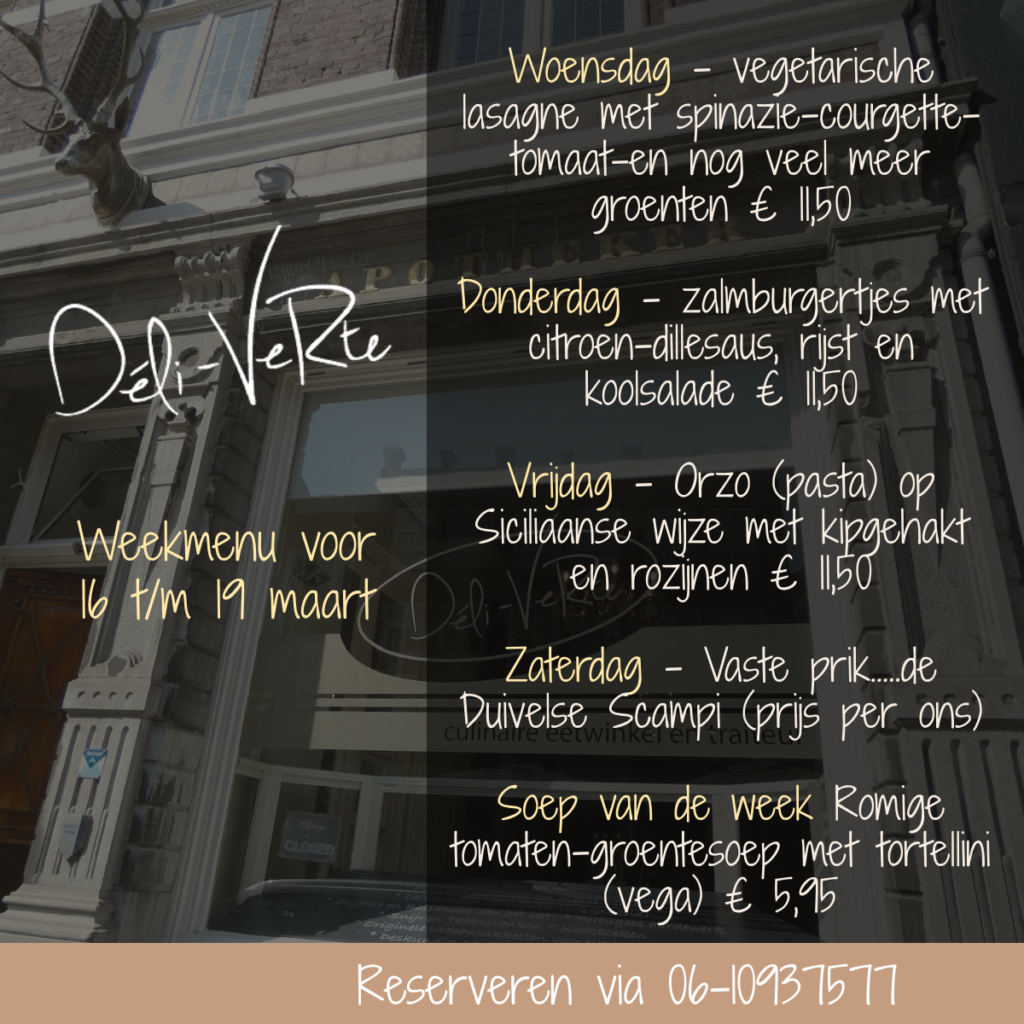 Déli-VeRte
Weekmenu voor
16 t/m 19 maart
Woensdag - vegetarische
lasagne met spinazie-courgette-
tomaat-en nog veel meer
groenten € 11,50
Donderdag - zalmburgertjes met
citroen-dillesaus, rijst en
koolsalade € 11,50
Vrijdag - Orzo (pasta) op
Siciliaanse wijze met kipgehakt
en rozijnen € 11,50
Zaterdag - Vaste prik.....de
Duivelse Scampi (prijs per ons)
Soep van de week Romige
tomaten-groentesoep met tortellini
(vega) € 5,95
Reserveren via 06-10937577
APOTHEKER
Déli-VeRte
culinaire eetwinkel en traiteur
CLOSED